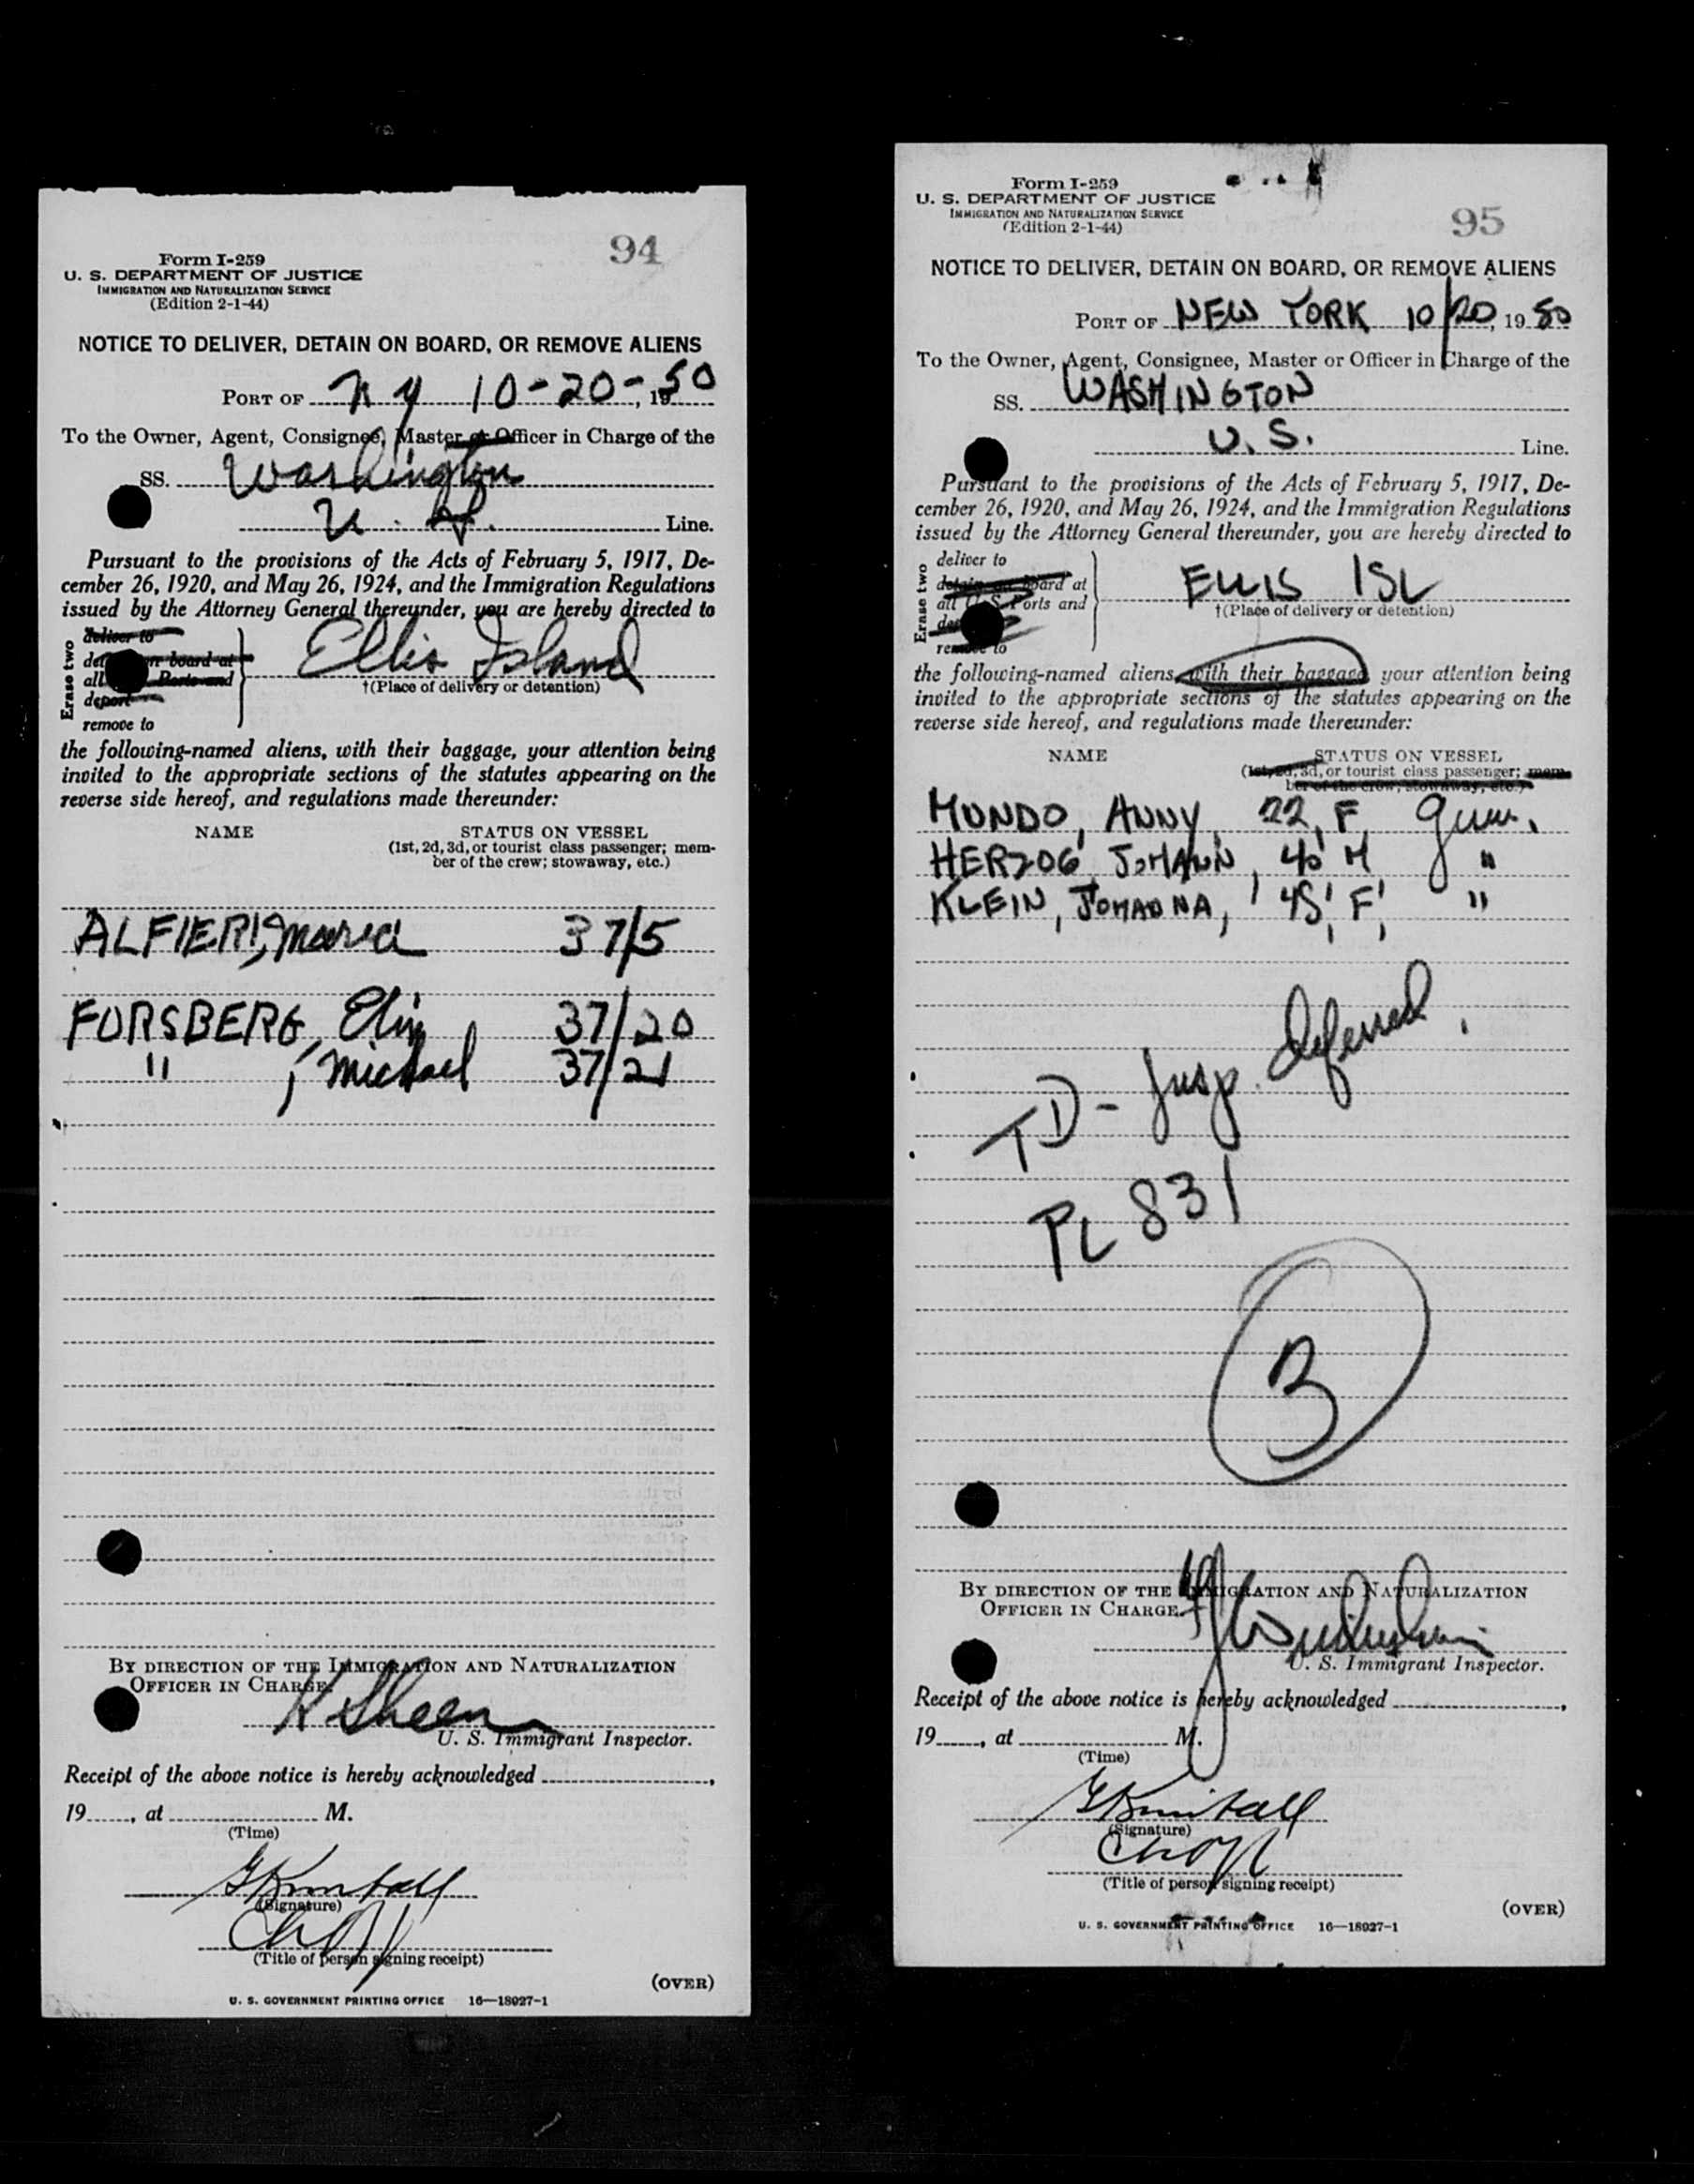 94
Form I-259
U. S. DEPARTMENT OF JUSTICE
IMMIGRATION AND NATURALIZATION SERVICE
(Edition 2-1-44)
NOTICE TO DELIVER, DETAIN ON BOARD, OR REMOVE ALIENS
PORT OF N Y 10-20-, 1950
To the Owner, Agent, Consignee, Master or Officer in Charge of the
SS. Washington
U. S. Line.
Pursuant to the provisions of the Acts of February 5, 1917, De-
cember 26, 1920, and May 26, 1924, and the Immigration Regulations
issued by the Attorney General thereunder, you are hereby directed to
Erase two
deliver to
board at
all Ports and
deport
remove to
Ellis Island
†(Place of delivery or detention)
the following-named aliens, with their baggage, your attention being
invited to the appropriate sections of the statutes appearing on the
reverse side hereof, and regulations made thereunder:
NAME STATUS ON VESSEL
(1st, 2d, 3d, or tourist class passenger; mem-
ber of the crew; stowaway, etc.)
ALFIERI, Maria 37/5
FORSBERG, Elin 37/20
" , Michael 37/21
BY DIRECTION OF THE IMMIGRATION AND NATURALIZATION
OFFICER IN CHARGE.
H Sheen
U. S. Immigrant Inspector.
Receipt of the above notice is hereby acknowledged ,
19 , at M.
(Time)
Kimball
(Signature)
(Title of person signing receipt)
(OVER)
U. S. GOVERNMENT PRINTING OFFICE 16—18027-1
Form I-259
U. S. DEPARTMENT OF JUSTICE
IMMIGRATION AND NATURALIZATION SERVICE
(Edition 2-1-44)
95
NOTICE TO DELIVER, DETAIN ON BOARD, OR REMOVE ALIENS
PORT OF NEW YORK 10/20, 1950
To the Owner, Agent, Consignee, Master or Officer in Charge of the
SS. WASHINGTON
U. S. Line.
Pursuant to the provisions of the Acts of February 5, 1917, De-
cember 26, 1920, and May 26, 1924, and the Immigration Regulations
issued by the Attorney General thereunder, you are hereby directed to
Erase two
deliver to
board at
all U. S. Ports and
remove to
ELLIS ISL
†(Place of delivery or detention)
the following-named aliens, with their baggage, your attention being
invited to the appropriate sections of the statutes appearing on the
reverse side hereof, and regulations made thereunder:
NAME STATUS ON VESSEL
(1st, 2d, 3d, or tourist class passenger; mem-
ber of the crew; stowaway, etc.)
MUNDO, ANNY, 22, F,
HERZOG, JOHANN, 40 M "
KLEIN, JOHANNA, 45, F, "
TD - Insp. deferred.
PL 831
B
BY DIRECTION OF THE IMMIGRATION AND NATURALIZATION
OFFICER IN CHARGE.
U. S. Immigrant Inspector.
Receipt of the above notice is hereby acknowledged ,
19 , at M.
(Time)
Kimball
(Signature)
(Title of person signing receipt)
(OVER)
U. S. GOVERNMENT PRINTING OFFICE 16—18027-1